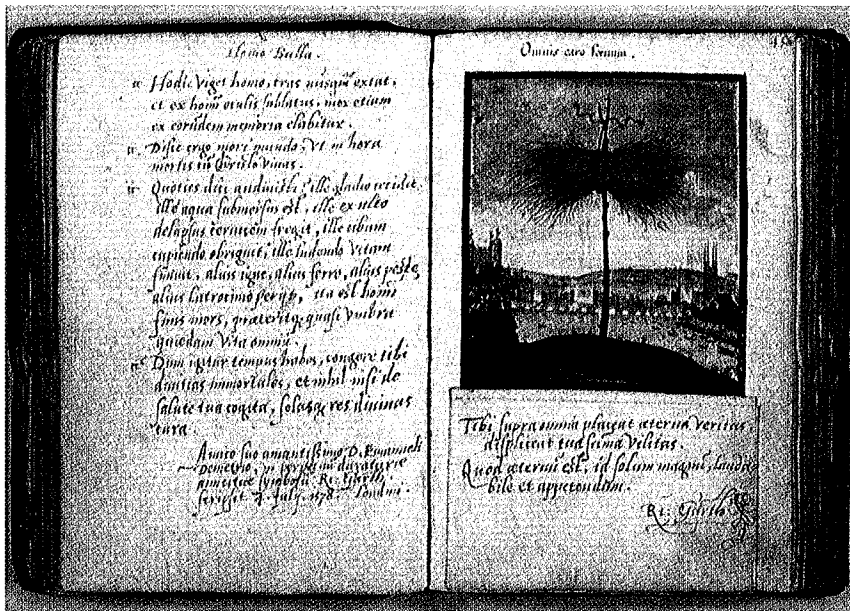 Homo Bulla.
Hodie viget homo, cras nusquā extat,
et ex homīn oculis sublatus, mox etiam
ex eorūdem memoria elabitur.
Disce ergo mori mundo, Vt in hora
mortis cū Christo vivas.
Quoties dici audivisti? ille gladio cecidit,
ille aqua submersus est, ille ex alto
delapsus cervicem fregit, ille cibum
capiendo obriguit, ille ludendo Vitam
finivit, alius igne, alius ferro, alius peste,
alius latrocinio perijt, ita est homī
finis mors, præteritq; quasi Vmbra
quædam Vita omniū.
Dum igitur tempus habes, congere tibi
divitias immortales, et nihil nisi de
salute tua cogita, solasq; res divinas
cura.
Amico suo amantissimo D. Emanueli
Demetrio, in
amicitiæ symbolū Ri: Garth
scripsit 7. July. 1578. Londini.
Omnis caro fœnum.
Tibi supra omnia placeat æterna veritas
displiceat tua summa vilitas.
Quod æternū est, id solum magnū, lauda
bile et appetendum.
Ri: Garth